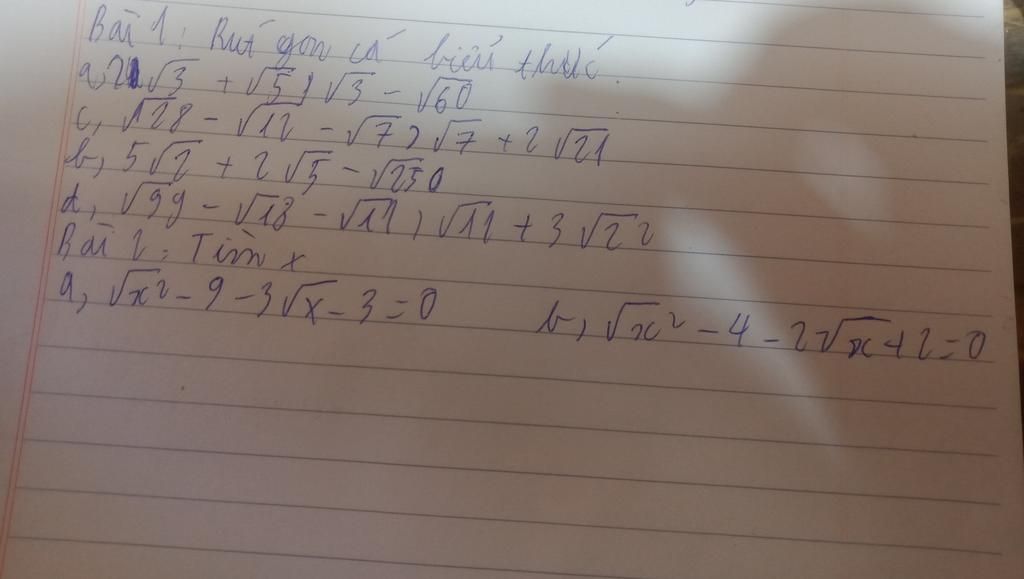 Bài 1: Rút gọn cá biểu thức.
a, 2(√3 + √5)√3 - √60
c, √128 - √12 - √7)√7 + 2√21
b, 5√2 + 2√5 - √250
d, √99 - √18 - √11)√11 + 3√22
Bài 2: Tìm x
a, √x² - 9 - 3√x - 3 = 0 b, √x² - 4 - 2√x + 2 = 0